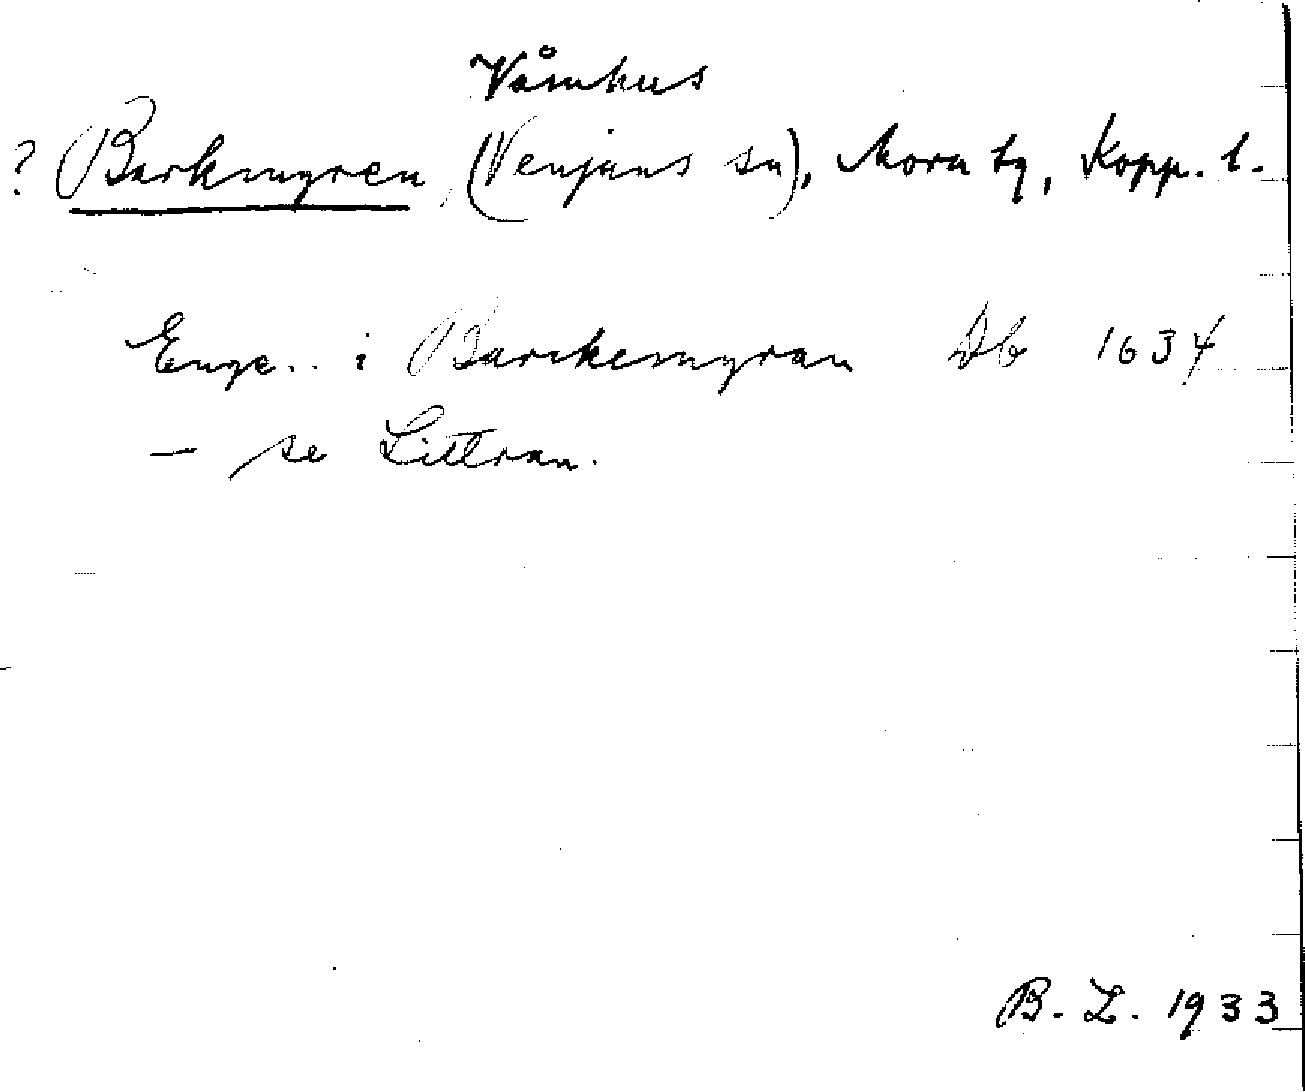 Våmhus
? Barkmyren (Venjans sn), Mora tg, Kopp. l.
Enge.. i Barckemyran Db 1634
— se Littran.
B. L. 1933